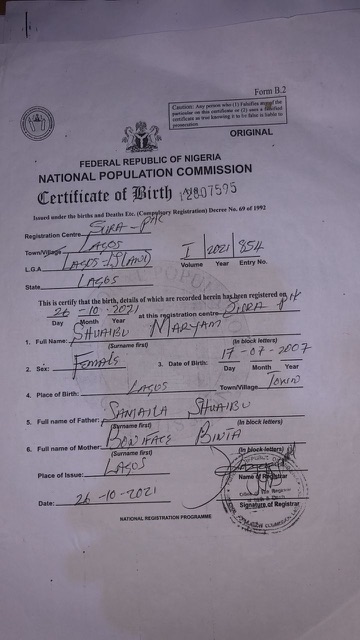 Form B.2
Caution: Any person who (1) Falsifies any of the
particular on this certificate or (2) uses a falsified
certificate as true knowing it to be false is liable to
prosecution
ORIGINAL
FEDERAL REPUBLIC OF NIGERIA
NATIONAL POPULATION COMMISSION
Certificate of Birth
Issued under the births and Deaths Etc. (Compulsory Registration) Decree No. 69 of 1992
Registration Centre SURA-PHC
Town/Village LAGOS
L.G.A LAGOS-ISLAND
State LAGOS
I 2021 854
Volume Year Entry No.
This is certify that the birth, details of which are recorded herein has been registered on
26-10-2021 at this registration centre
Day Month Year
1. Full Name: SHUAIBU MARYAM
(Surname first) (In block letters)
2. Sex: FEMALE 3. Date of Birth: 17-07-2007
Day Month Year
4. Place of Birth: LAGOS Town/Village TOWN
5. Full name of Father: SAMAILA SHUAIBU
(Surname first) (In block letters)
6. Full name of Mother: BONIFACE BINTA
(Surname first) (In block letters)
Place of Issue: LAGOS
Name of Registrar
Date: 26-10-2021
Signature of Registrar
NATIONAL REGISTRATION PROGRAMME